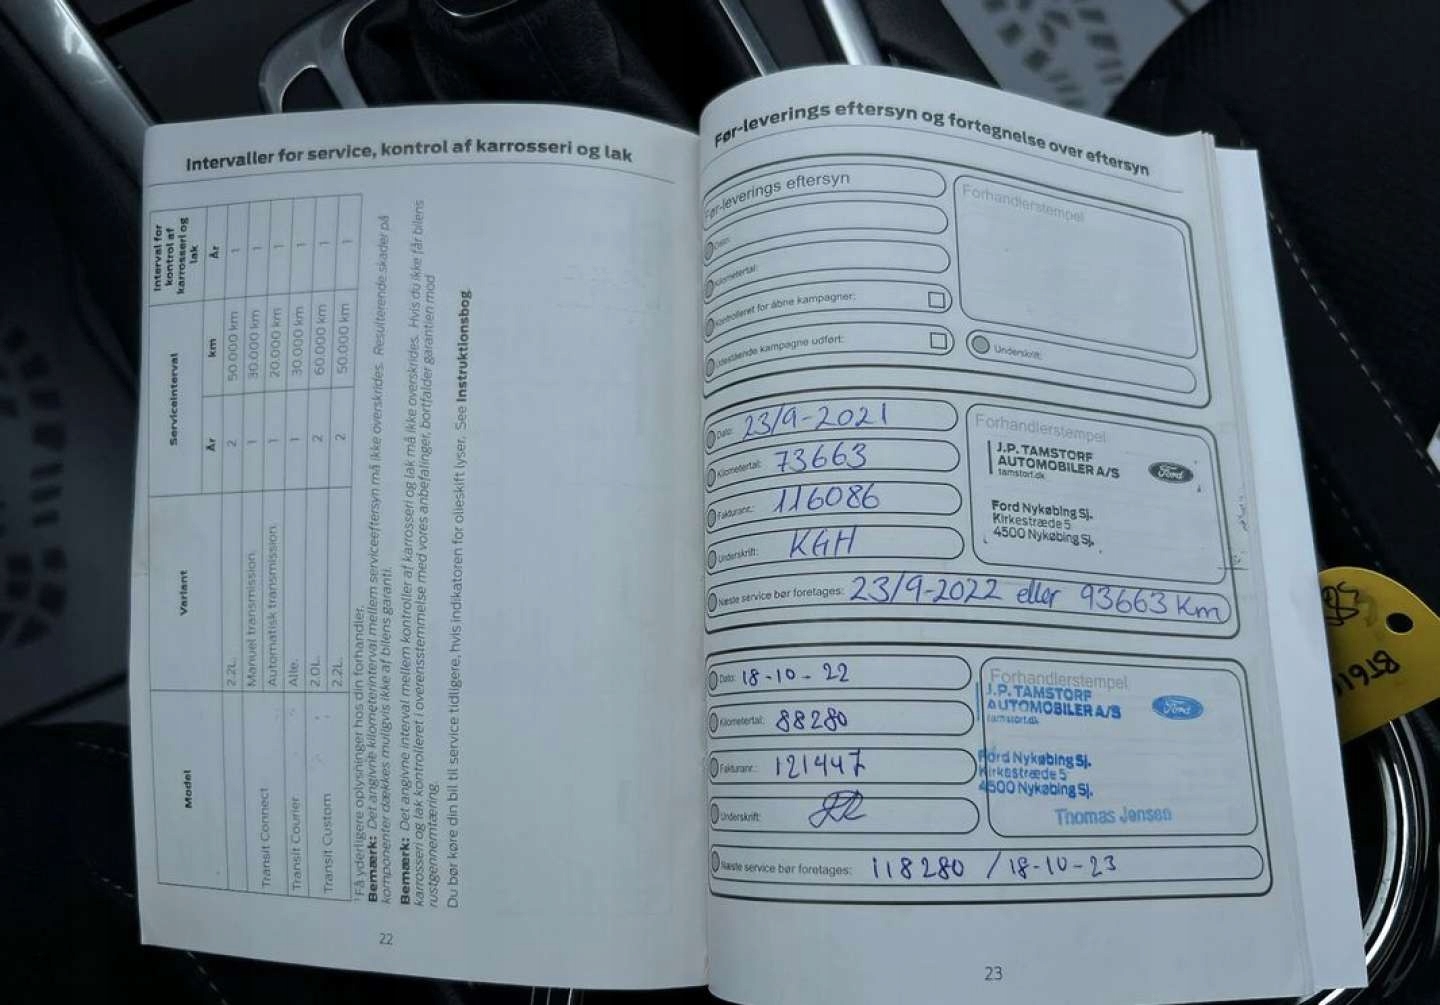 Intervaller for service, kontrol af karrosseri og lak
Model
Variant
Serviceinterval
Interval for kontrol af karrosseri og lak
År
km
År
2.2L. 2 50.000 km 1
Transit Connect
Manuel transmission. 1 30.000 km 1
Automatisk transmission. 1 20.000 km 1
Transit Courier Alle. 1 30.000 km 1
Transit Custom
2.0L. 2 60.000 km 1
2.2L. 2 50.000 km 1
¹Få yderligere oplysninger hos din forhandler.
Bemærk: Det angivne kilometerinterval mellem serviceeftersyn må ikke overskrides. Resulterende skader på
komponenter dækkes muligvis ikke af bilens garanti.
Bemærk: Det angivne interval mellem kontroller af karrosseri og lak må ikke overskrides. Hvis du ikke får bilens
karrosseri og lak kontrolleret i overensstemmelse med vores anbefalinger, bortfalder garantien mod
rustgennemtæring.
Du bør køre din bil til service tidligere, hvis indikatoren for olieskift lyser. See Instruktionsbog
22
Før-leverings eftersyn og fortegnelse over eftersyn
Før-leverings eftersyn
Dato:
Kilometertal:
Kontrolleret for åbne kampagner:
Udestående kampagne udført:
Forhandlerstempel
Underskrift:
Dato: 23/9-2021
Kilometertal: 73663
Fakturanr.: 116086
Underskrift: KGH
Næste service bør foretages: 23/9-2022 eller 93663 Km
Forhandlerstempel
J.P. TAMSTORF
AUTOMOBILER A/S
tamstorf.dk
Ford
Ford Nykøbing Sj.
Kirkestræde 5
4500 Nykøbing Sj.
Dato: 18-10-22
Kilometertal: 88280
Fakturanr.: 121447
Underskrift:
Næste service bør foretages: 118280 / 18-10-23
Forhandlerstempel
J.P. TAMSTORF
AUTOMOBILER A/S
tamstorf.dk
Ford
Ford Nykøbing Sj.
Kirkestræde 5
4500 Nykøbing Sj.
Thomas Jensen
23